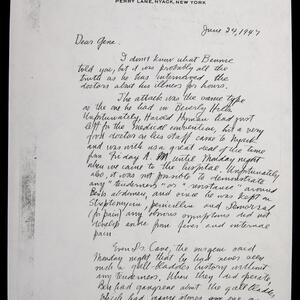 PERRY LANE, NYACK, NEW YORK
June 24, 1947
Dear Gene,
I don't know what Bennie
told you, but it was probably all the
truth as he has interviewed the
doctors about his illness for hours.
The attack was the same type
as the one he had in Beverly Hills.
Unfortunately, Harold Hyman had just
left for the medical convention, but a very
fine doctor on his staff came to Nyack
and was with us a great deal of the time
from Friday A.M. until Monday night
when we came to the hospital. Unfortunately
also, it was not possible to demonstrate
any "tenderness" or "resistance" around
Ben's abdomen, and since he was kept in
Streptomycin, penicillin and Demerol
(for pain) any obvious symptoms did not
develop aside from fever and internal
pain.
Even Dr. Cave, the surgeon said
Monday night that he had never seen
such a gall bladder history without
any tenderness. When they did operate,
Ben had gangrene about the gall bladder
which had